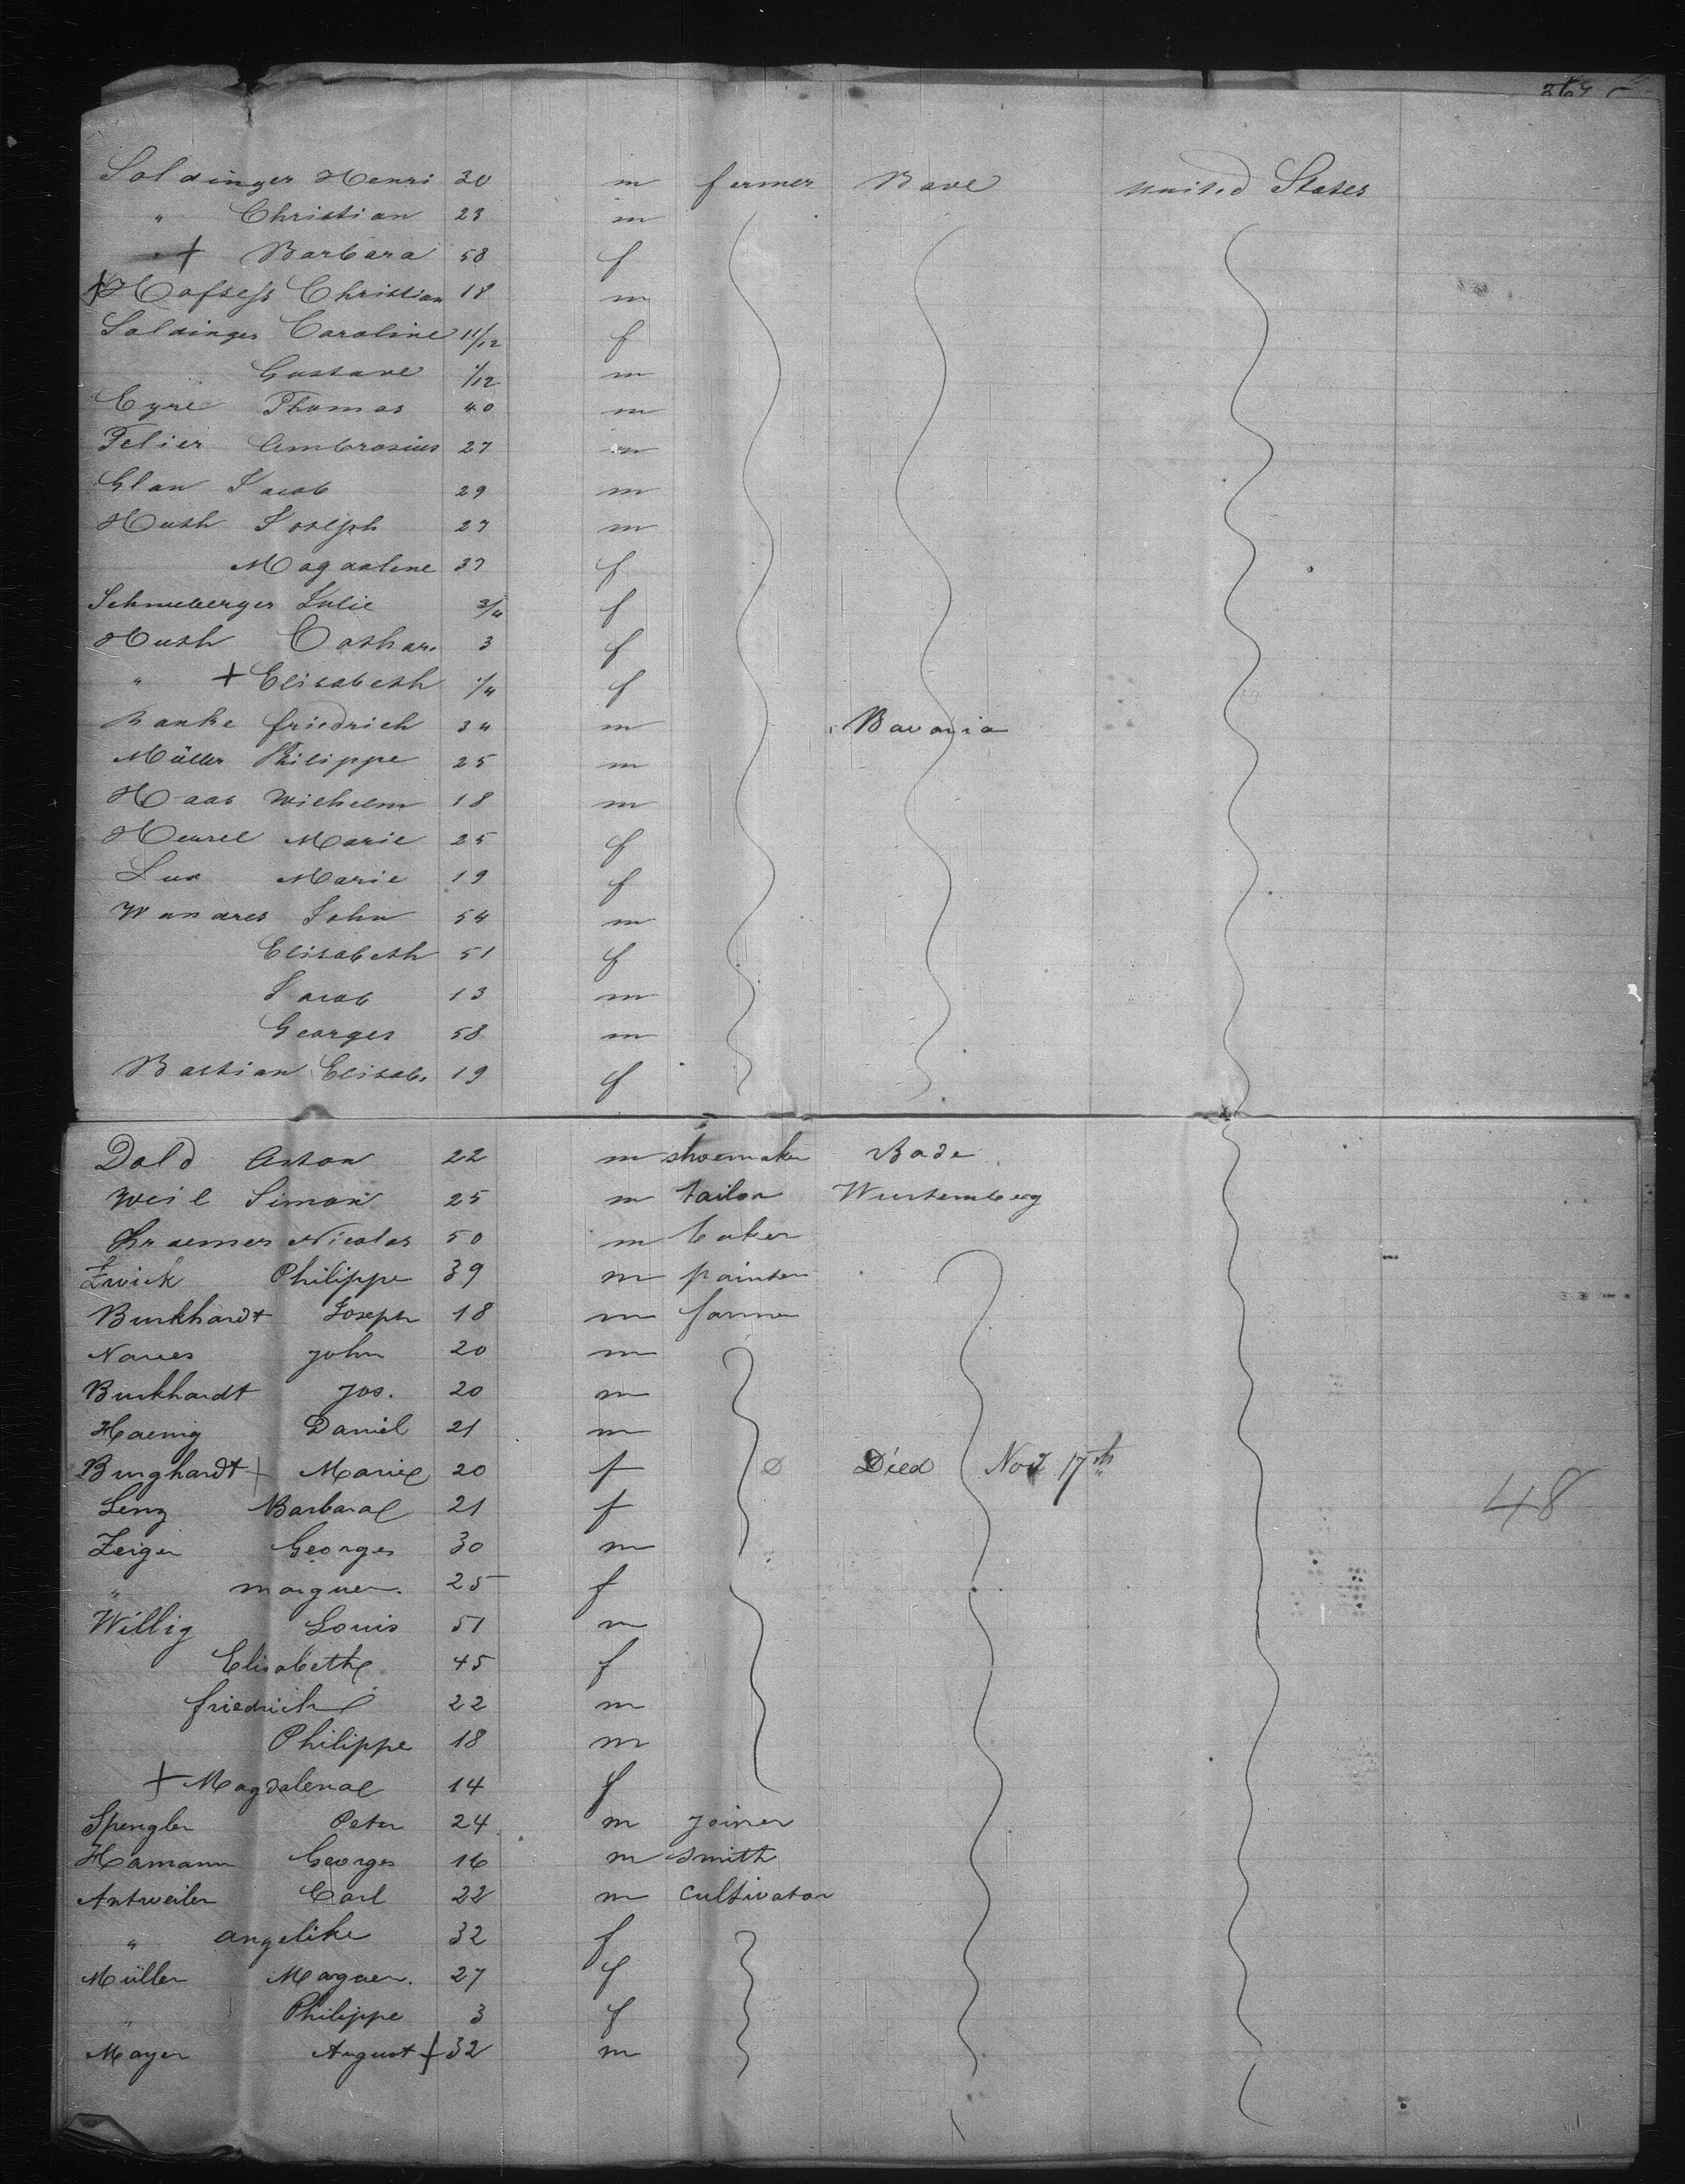 Soldinger Henri 30 m farmer Bade United States
" Christian 23 m
" + Barbara 58 f
+ Hofsess Christian 18 m
Soldinger Caroline 11/12 f
Gustave 1/12 m
Eyre Thomas 40 m
Felier Ambrosius 27 m
Glan Jacob 29 m
Huth Joseph 27 m
Magdalene 37 f
Schneeberger Julie 3/4 f
Huth Cathar. 3 f
" + Elisabeth 1/4 f
Banke friedrich 34 m Bavaria
Müller Philippe 25 m
Haas Wilhelm 18 m
Marie 25 f
Lux Marie 19 f
John 54 m
Elisabeth 51 f
Jacob 13 m
Georges 58 m
Bastian Elisab. 19 f
Dold Anton 22 m shoemaker Bade
Weil Simon 25 m tailor Wurtemberg
Kraemer Nicolas 50 m baker
Zwick Philippe 39 m painter
Burkhardt Joseph 18 m farmer
John 20 m
Burkhardt Jos. 20 m
Haenig Daniel 21 m
Burghardt + Marie 20 f Died Nov 17th
Lenz Barbara 21 f 48
Zeiger Georges 30 m
" marguer. 25 f
Willig Louis 51 m
Elisabethe 45 f
friedrich 22 m
Philippe 18 m
+ Magdalena 14 f
Spengler Peter 24 m joiner
Hamann Georges 16 m smith
Antweiler Carl 22 m cultivator
" angelike 32 f
Müller Marguer. 27 f
" Philippe 3 f
Mayer August + 32 m